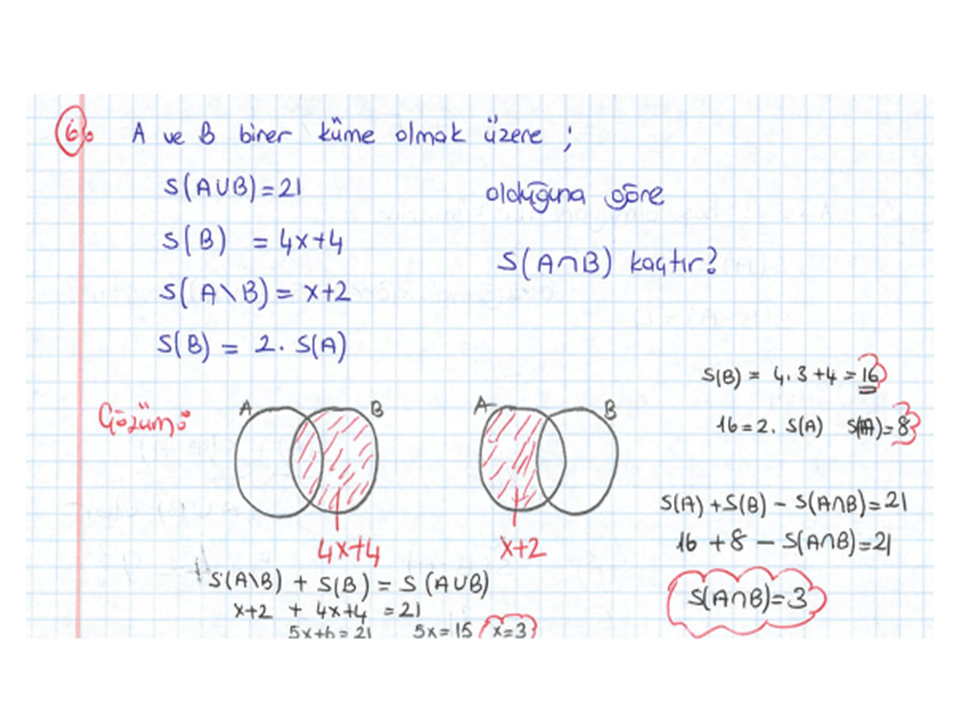 6. A ve B birer küme olmak üzere ;
S(A∪B)=21
S(B) = 4x+4
S(A\B)= x+2
S(B) = 2. S(A)
olduğuna göre
S(A∩B) kaçtır?
Çözüm:
A B
4x+4
S(A\B) + S(B) = S(A∪B)
x+2 + 4x+4 = 21
5x+6=21 5x=15 x=3
A B
x+2
S(B) = 4.3+4=16
16=2. S(A) S(A)=8
S(A)+S(B) - S(A∩B)=21
16 +8 - S(A∩B)=21
S(A∩B)=3